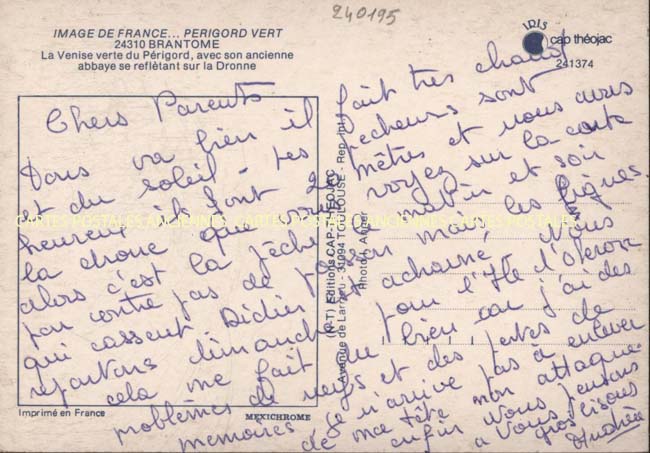 240195
IMAGE DE FRANCE... PERIGORD VERT
24310 BRANTOME
La Venise verte du Périgord, avec son ancienne
abbaye se reflètant sur la Dronne
IRIS
cap théojac
241374
Chers Parents
Tous va bien il fait très chaud
et du soleil - Les pecheurs sont
heureux ils sont 2 mètres et nous avons
la drone que vous voyez sur la carte
alors c'est la pêche matin et soir
par contre pas de poisson mais les lignes
qui cassent Didier acharné. Nous
repartons dimanche pour l'Ile d'Oleron
cela me fait du bien car j'ai des
problèmes de nerfs et des pertes de
memoires je n'arrive pas à enlever
de ma tête mon attaque
enfin Nous pensons
a vous gros bisous
Andrée
CARTES POSTALES ANCIENNES - CARTES POSTALES ANCIENNES - CARTES POSTALES ANCIENNES
(P-T) Editions CAP-THEOJAC
31094 TOULOUSE - Rep. Int.
Imprimé en France
MEXICHROME